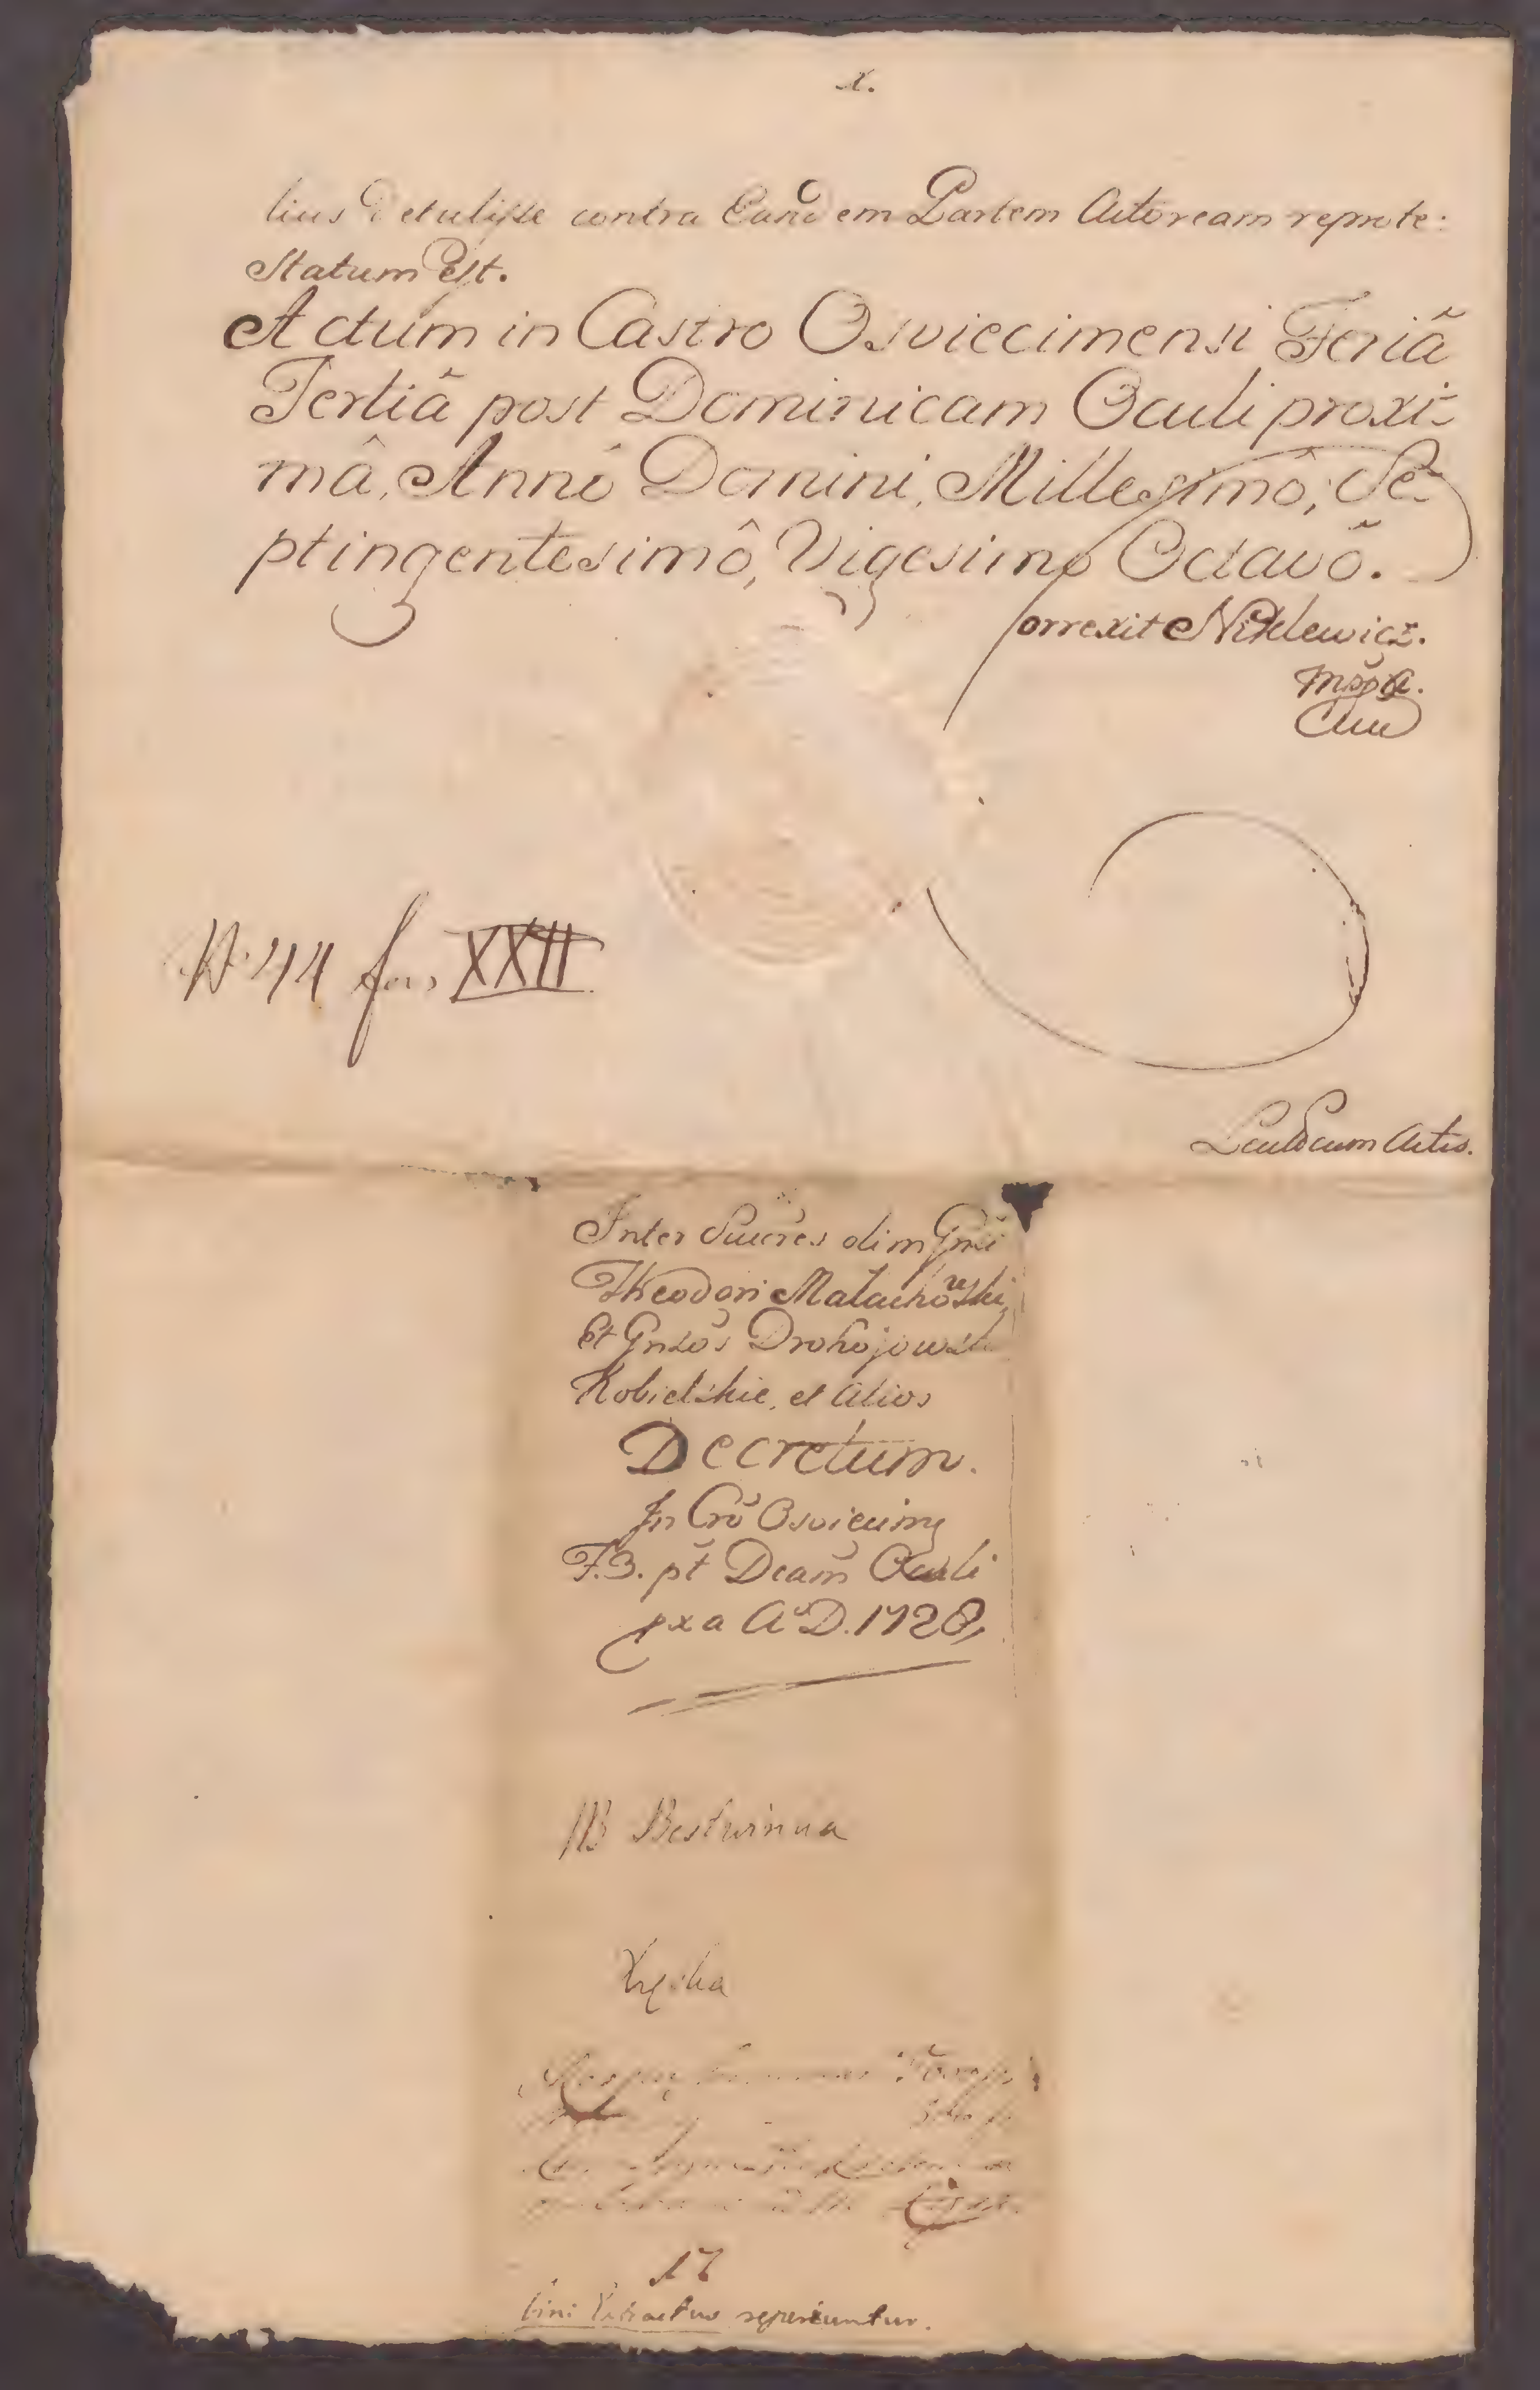 x.
lius Detulisse contra Eandem Partem Actoream reprote:
statum Est.
Actum in Castro Osviecimensi Feriâ
Tertiâ post Dominicam Oculi proxi-
mâ, Annô Domini, Millesimô, Se-
ptingentesimô, Vigesimo Octavô.
Correxit Niklewicz.
mppa.
N. 44 fas XXII
Lect cum Actis.
Inter Succres olim Gnsi
Theodori Małachowski,
Et Gnsos Drohojowskie
Kobielskie, et Alios
Decretum.
In Cro Osviecimen
F. 3. pt Dcam Oculi
pxa A D. 1728,
NB Bestwinna
17
bini Extractus reperiuntur.